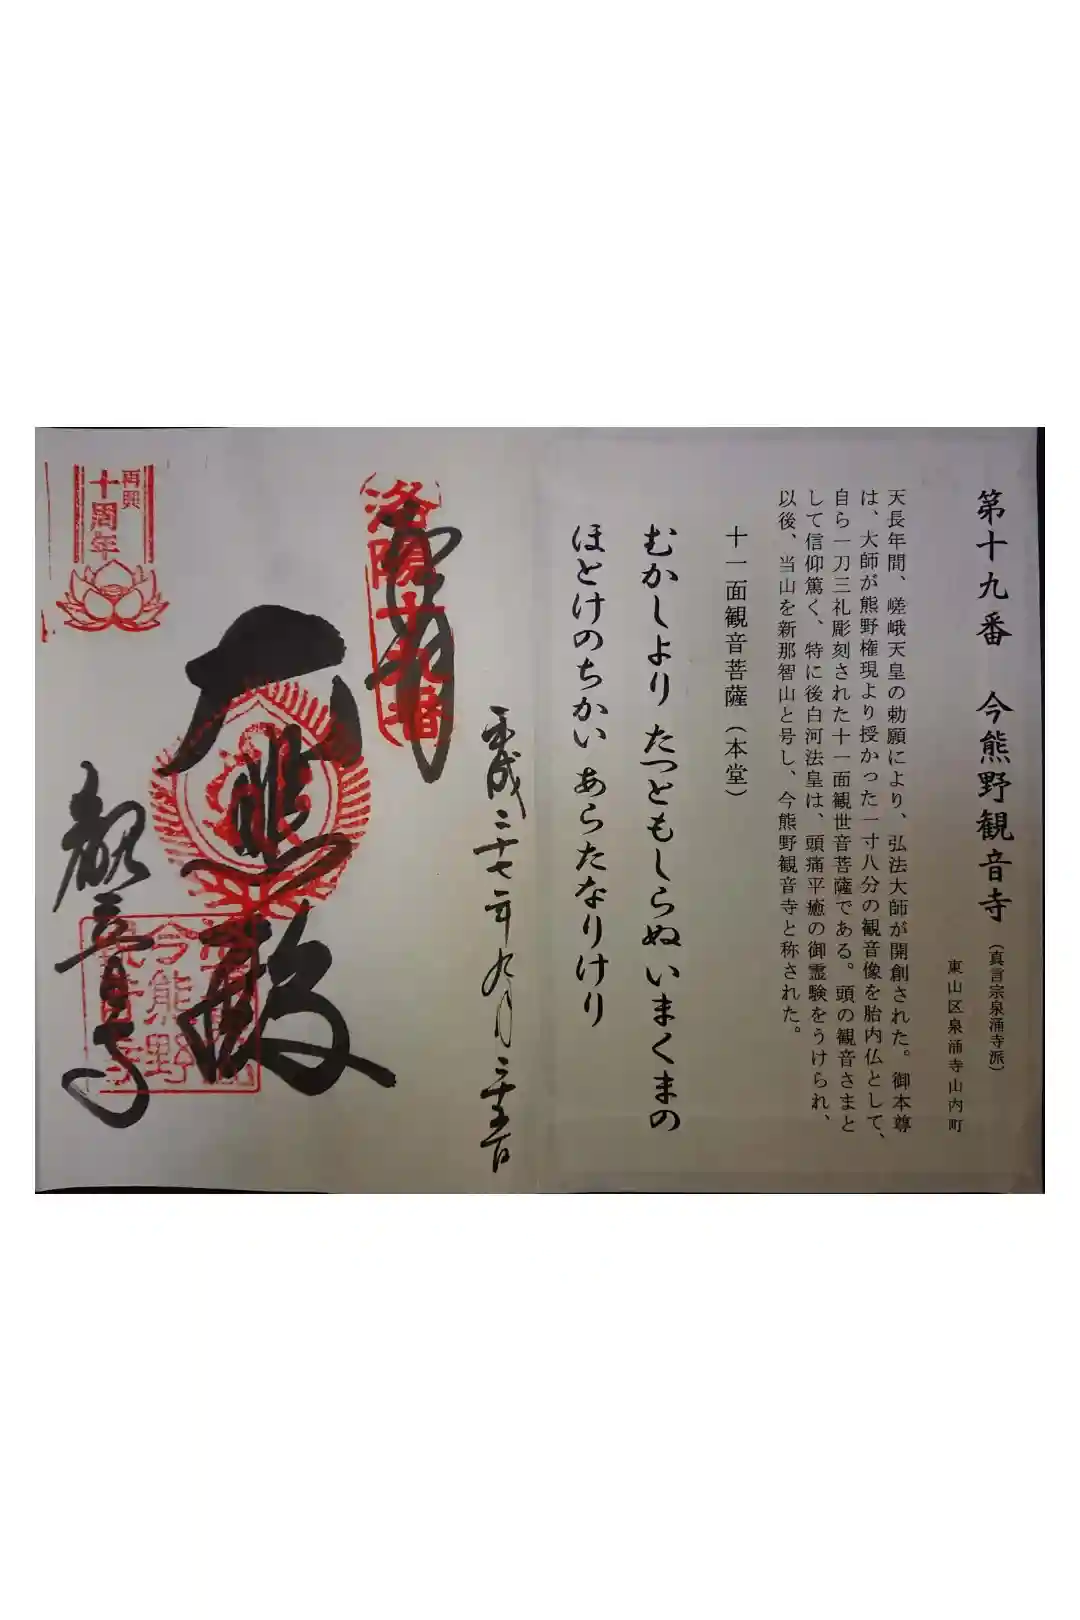 第十九番 今熊野観音寺
(真言宗泉涌寺派)
東山区泉涌寺山内町
天長年間、嵯峨天皇の勅願により、弘法大師が開創された。御本尊
は、大師が熊野権現より授かった一寸八分の観音像を胎内仏として、
自ら一刀三礼彫刻された十一面観世音菩薩である。頭の観音さまと
して信仰篤く、特に後白河法皇は、頭痛平癒の御霊験をうけられ、
以後、当山を新那智山と号し、今熊野観音寺と称された。
十一面観音菩薩(本堂)
むかしより たつともしらぬ いまくまの
ほとけのちかい あらたなりけり
平成二十七年九月二十五日
洛陽十九番
大悲殿
観音寺
今熊野
再興
十周年